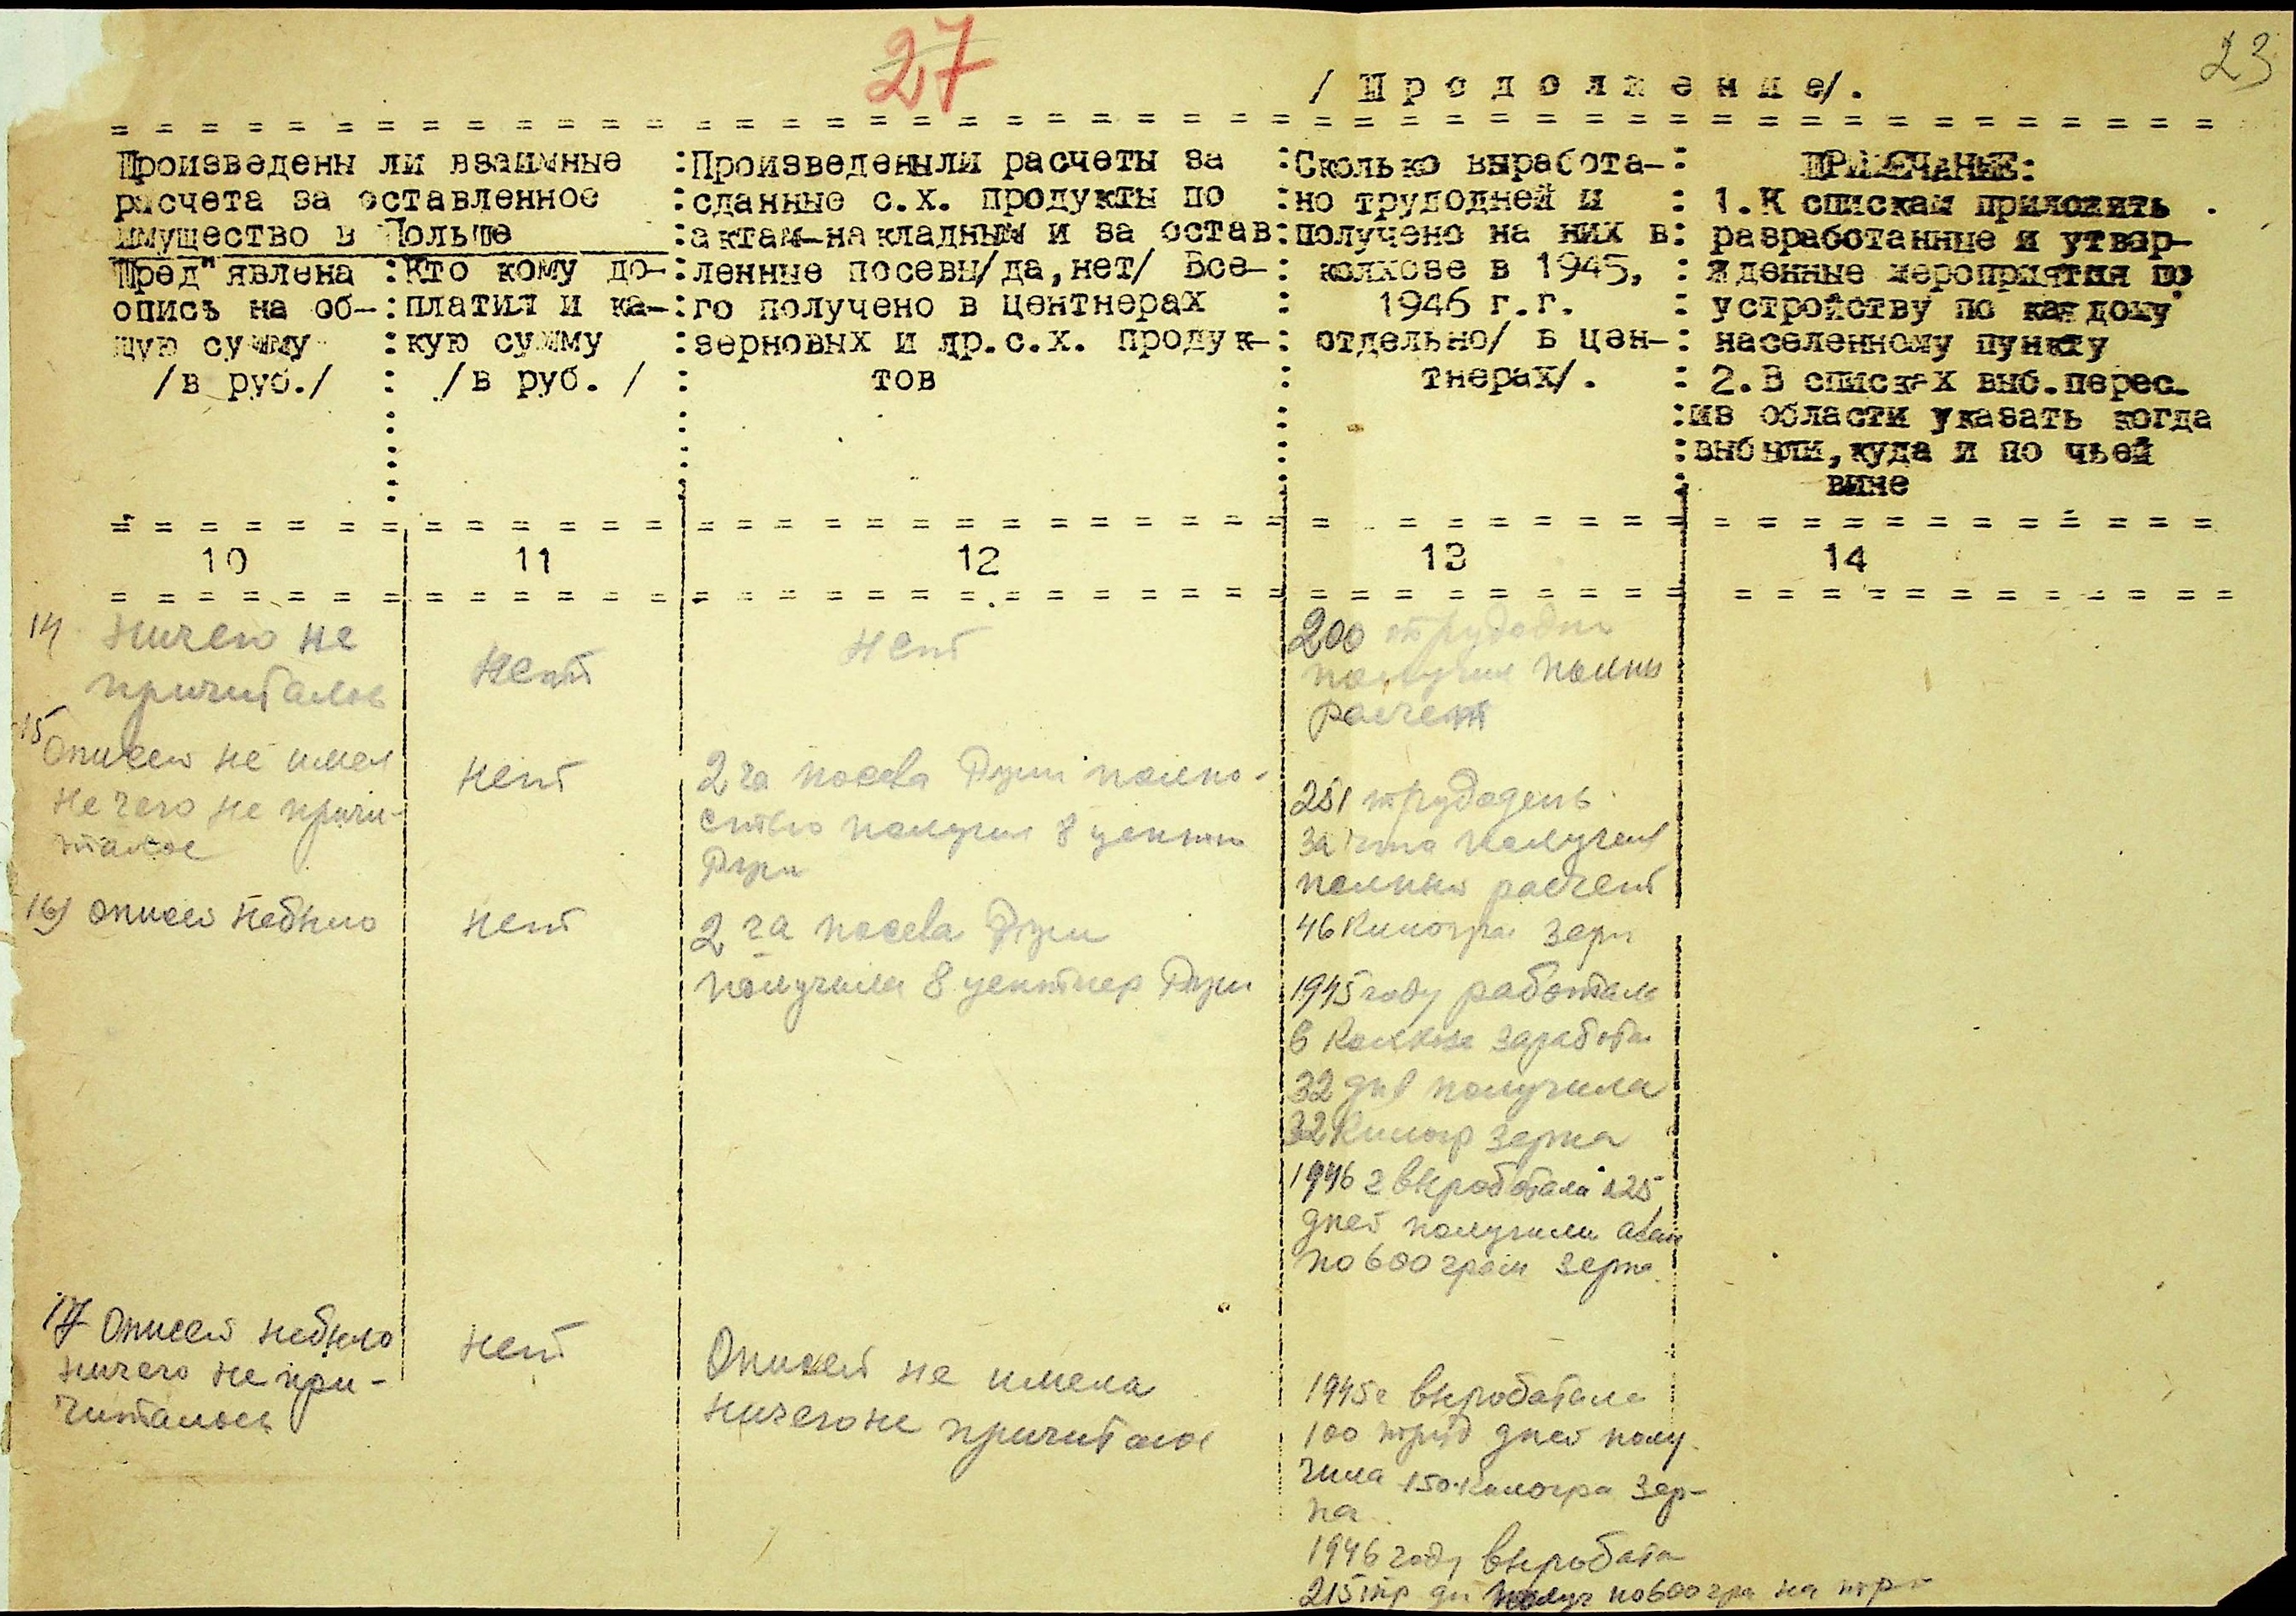 27
23
/ П р о д о л ж е н и е/.
Произведены ли взаимные
расчета за оставленное
имущество в Польше
Пред"явлена
опись на об-
щую сумму
/в руб./
Кто кому до-
платил и ка-
кую сумму
/в руб. /
Произведены ли расчеты за
сданные с.х. продукты по
актам-накладным и за остав
ленные посевы/да,нет/ Все-
го получено в центнерах
зерновых и др.с.х. продук-
тов
Сколько выработа-
но трудодней и
получено на них в
колхозе в 1945,
1946 г.г.
отдельно/ в цен-
тнерах/.
ПРИМЕЧАНИЕ:
1.К спискам приложить
разработанные и утвер-
жденные мероприятия по
устройству по каждому
населенному пункту
2.В списках выб.перес.
из области указать когда
выбыли,куда и по чьей
вине
10 11 12 13 14
14 ничего не
причиталось
нет
нет
200 трудодни
получил полны
расчет
15 Описей не имел
не чего не причи-
талос
нет
2 га посева Ржи полно-
стью получил 8 центн
Ржи
251 трудодень
за что получил
полный расчет
16) описей небыло
нет
2 га посева Ржи
получила 8 центнер Ржи
46 килогра зерн
1945 году работала
в колхозе заработа
32 дня получила
32 килогр зерна
1946 г выработала 125
дней получили аван
по 600 грам зерна
17 Описей небыло
ничего не при-
читалось
нет
Описей не имела
ничего не причиталос
1945 г выработала
100 труд дней полу-
чила 150 килогра зер-
на
1946 году выработа
215 тр дн получ по 600 гра на тр